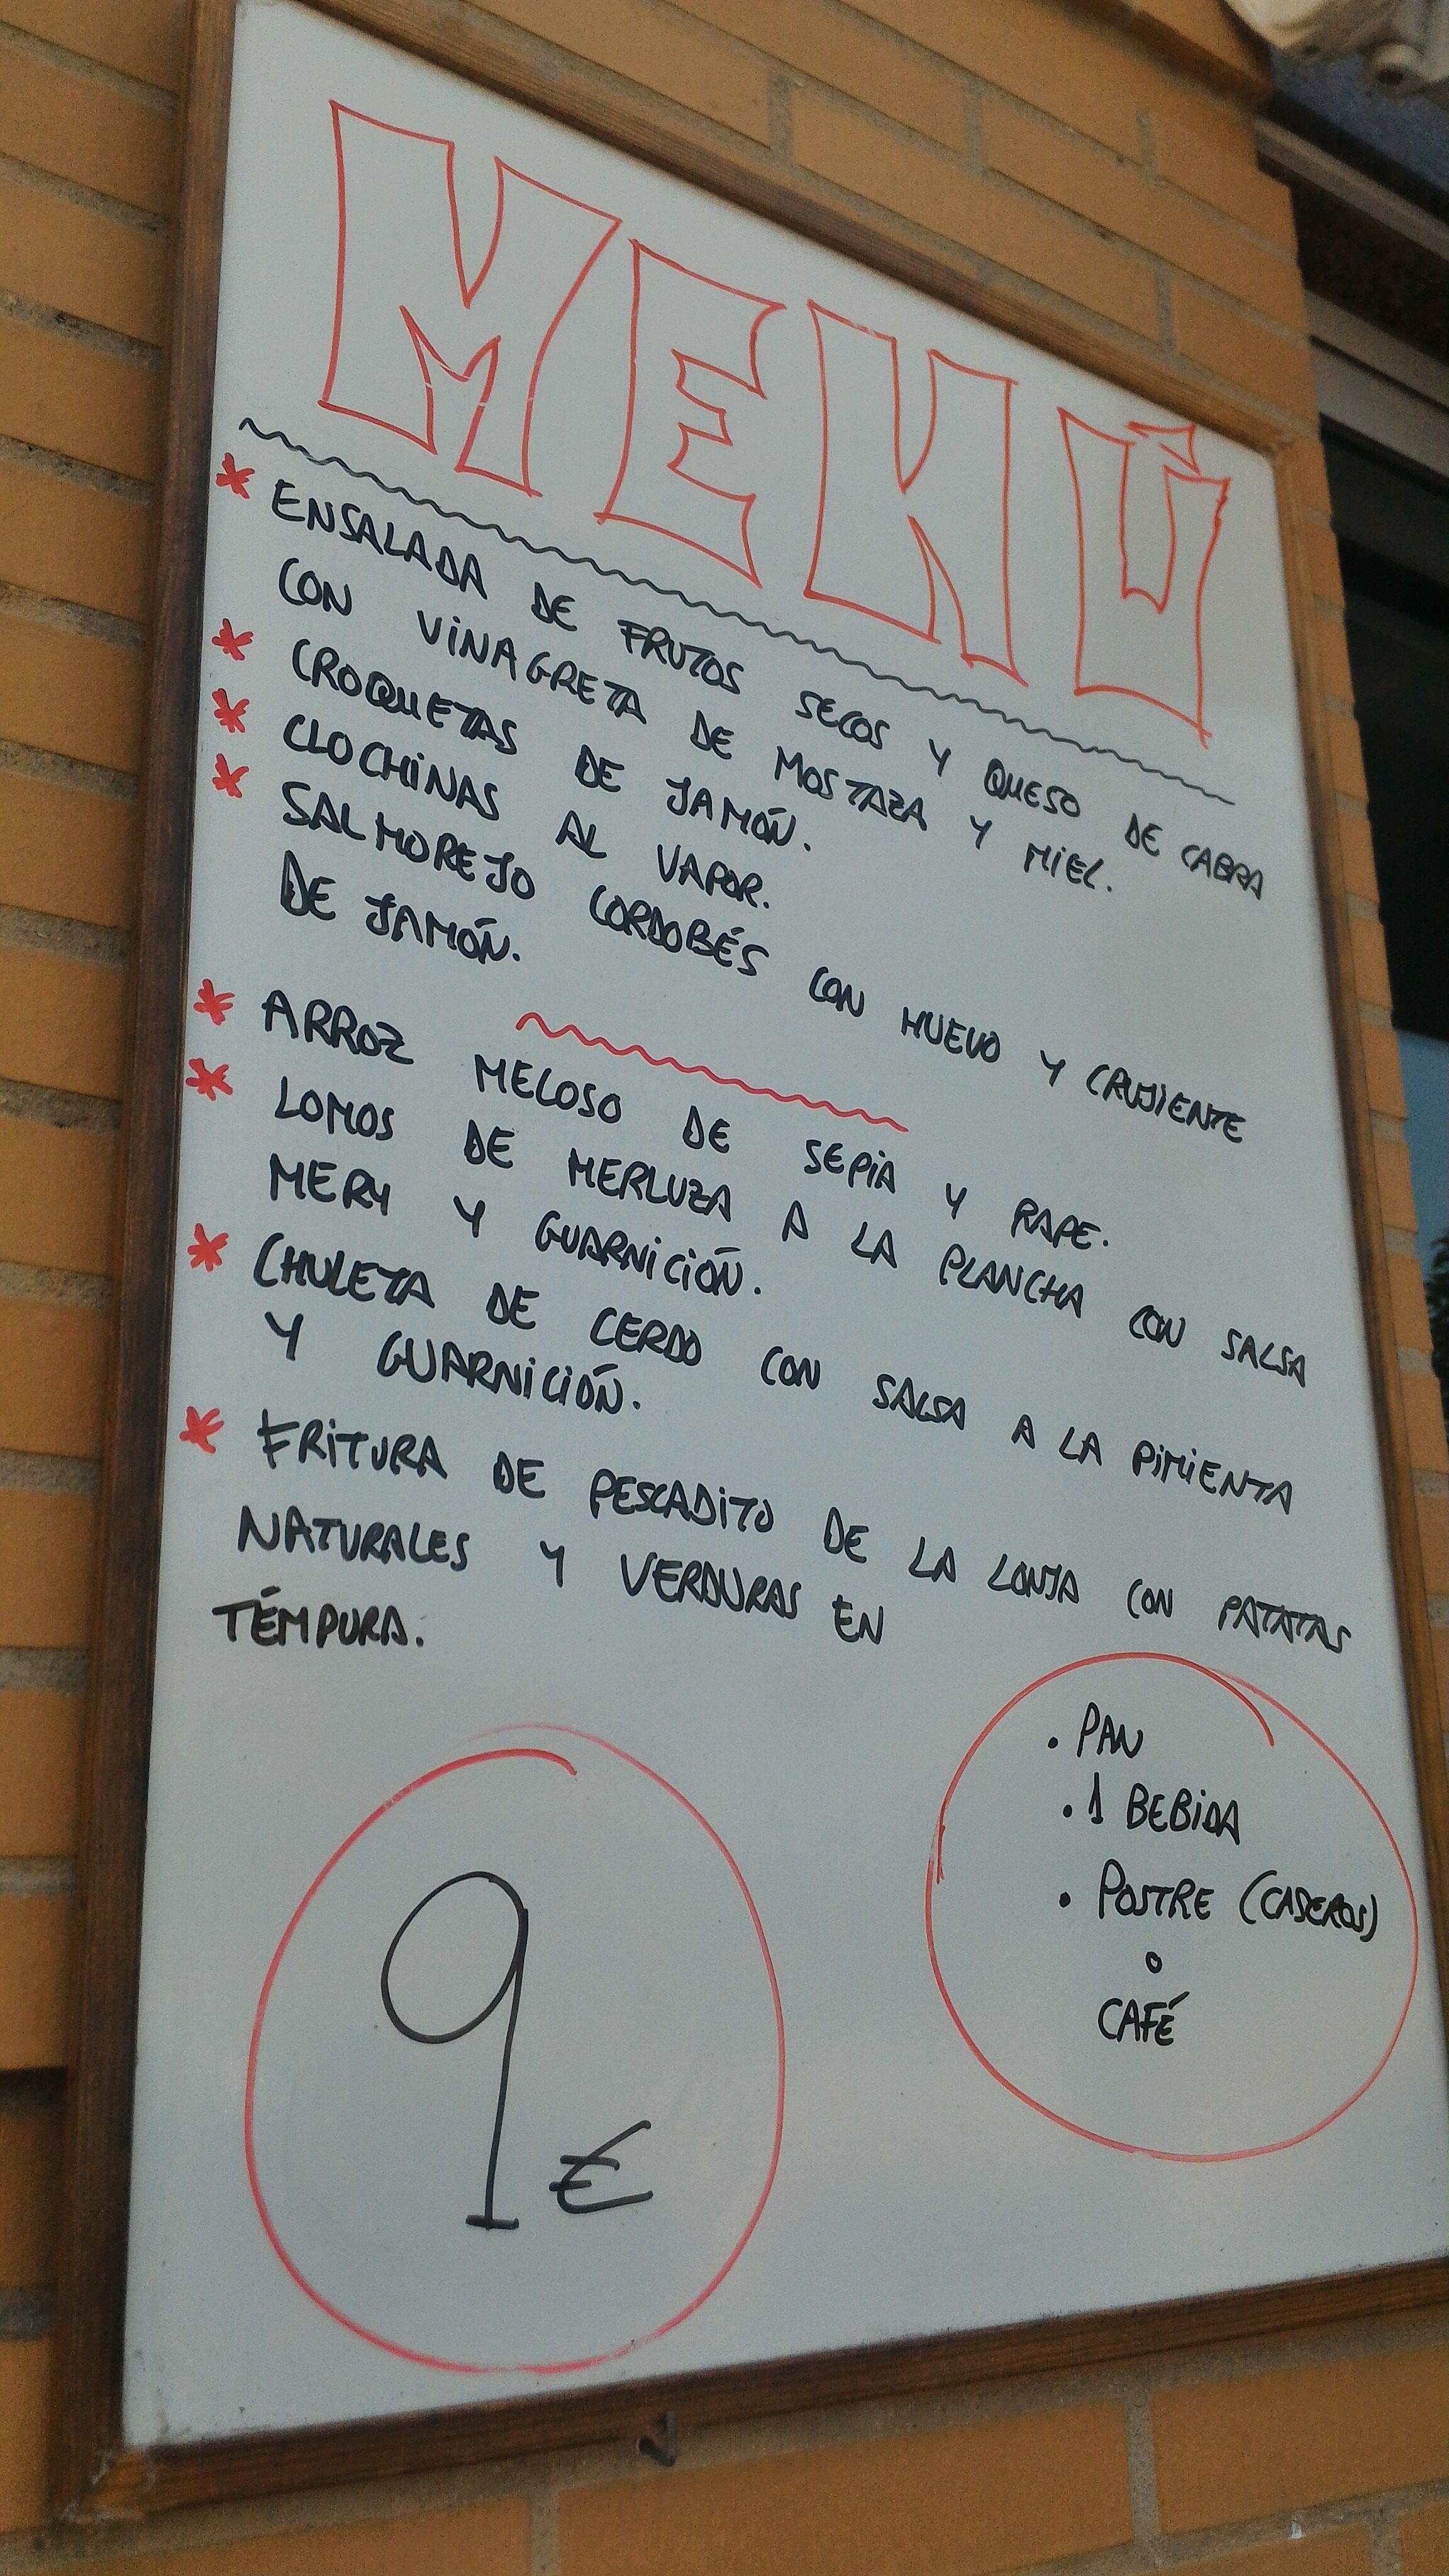 MENÚ
* ENSALADA DE FRUTOS SECOS Y QUESO DE CABRA
CON VINAGRETA DE MOSTAZA Y MIEL.
* CROQUETAS DE JAMÓN.
* CLOCHINAS AL VAPOR.
* SALMOREJO CORDOBÉS CON HUEVO Y CRUJIENTE
DE JAMÓN.
* ARROZ MELOSO DE SEPIA Y RAPE.
* LOMOS DE MERLUZA A LA PLANCHA CON SALSA
MERY Y GUARNICIÓN.
* CHULETA DE CERDO CON SALSA A LA PIMIENTA
Y GUARNICIÓN.
* FRITURA DE PESCADITO DE LA LONJA CON PATATAS
NATURALES Y VERDURAS EN
TÉMPURA.
9 €
. PAN
. 1 BEBIDA
. POSTRE (CASEROS)
o
CAFÉ